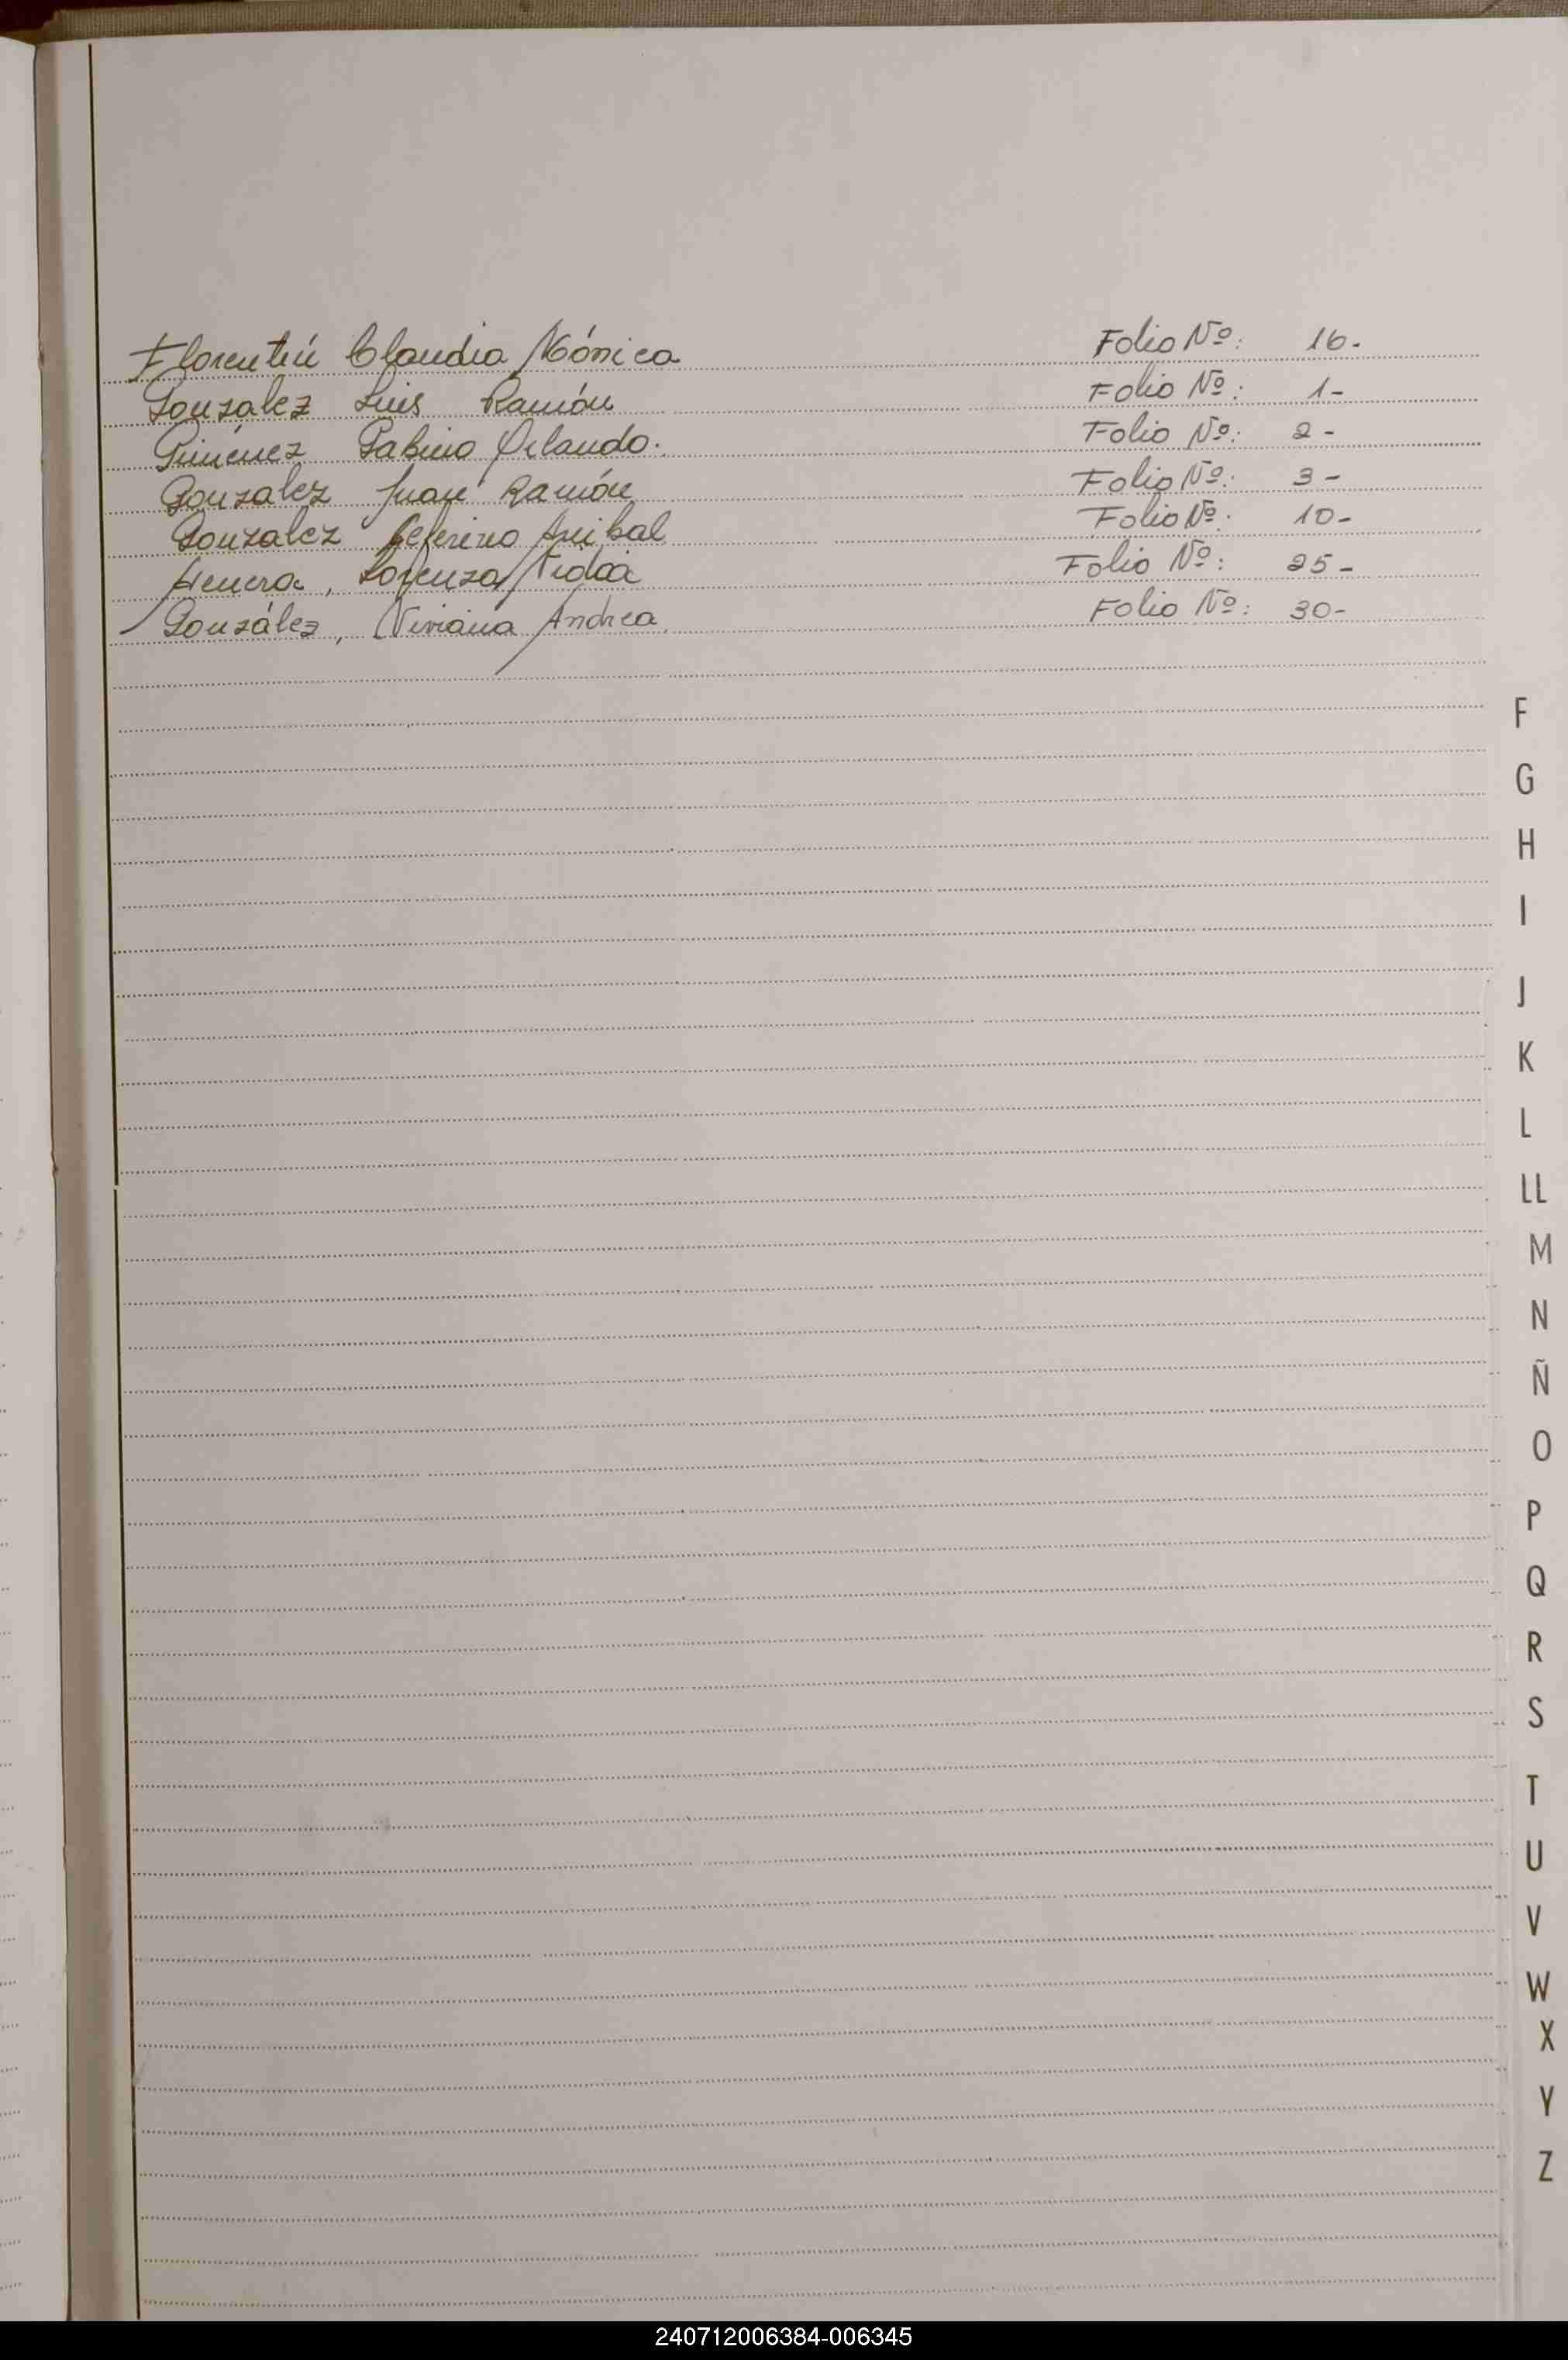 Florentín Claudia Mónica Folio Nº: 16.
Gonzalez Luis Ramón Folio Nº: 1-
Gimenez Gabino Orlando. Folio Nº: 2-
Gonzalez Juan Ramón Folio Nº: 3-
Gonzalez Ceferino Anibal Folio Nº: 10-
Lorenza Nidia Folio Nº: 25-
González, Viviana Andrea. Folio Nº: 30-
F
G
H
I
J
K
L
LL
M
N
Ñ
O
P
Q
R
S
T
U
V
W
X
Y
Z
240712006384-006345